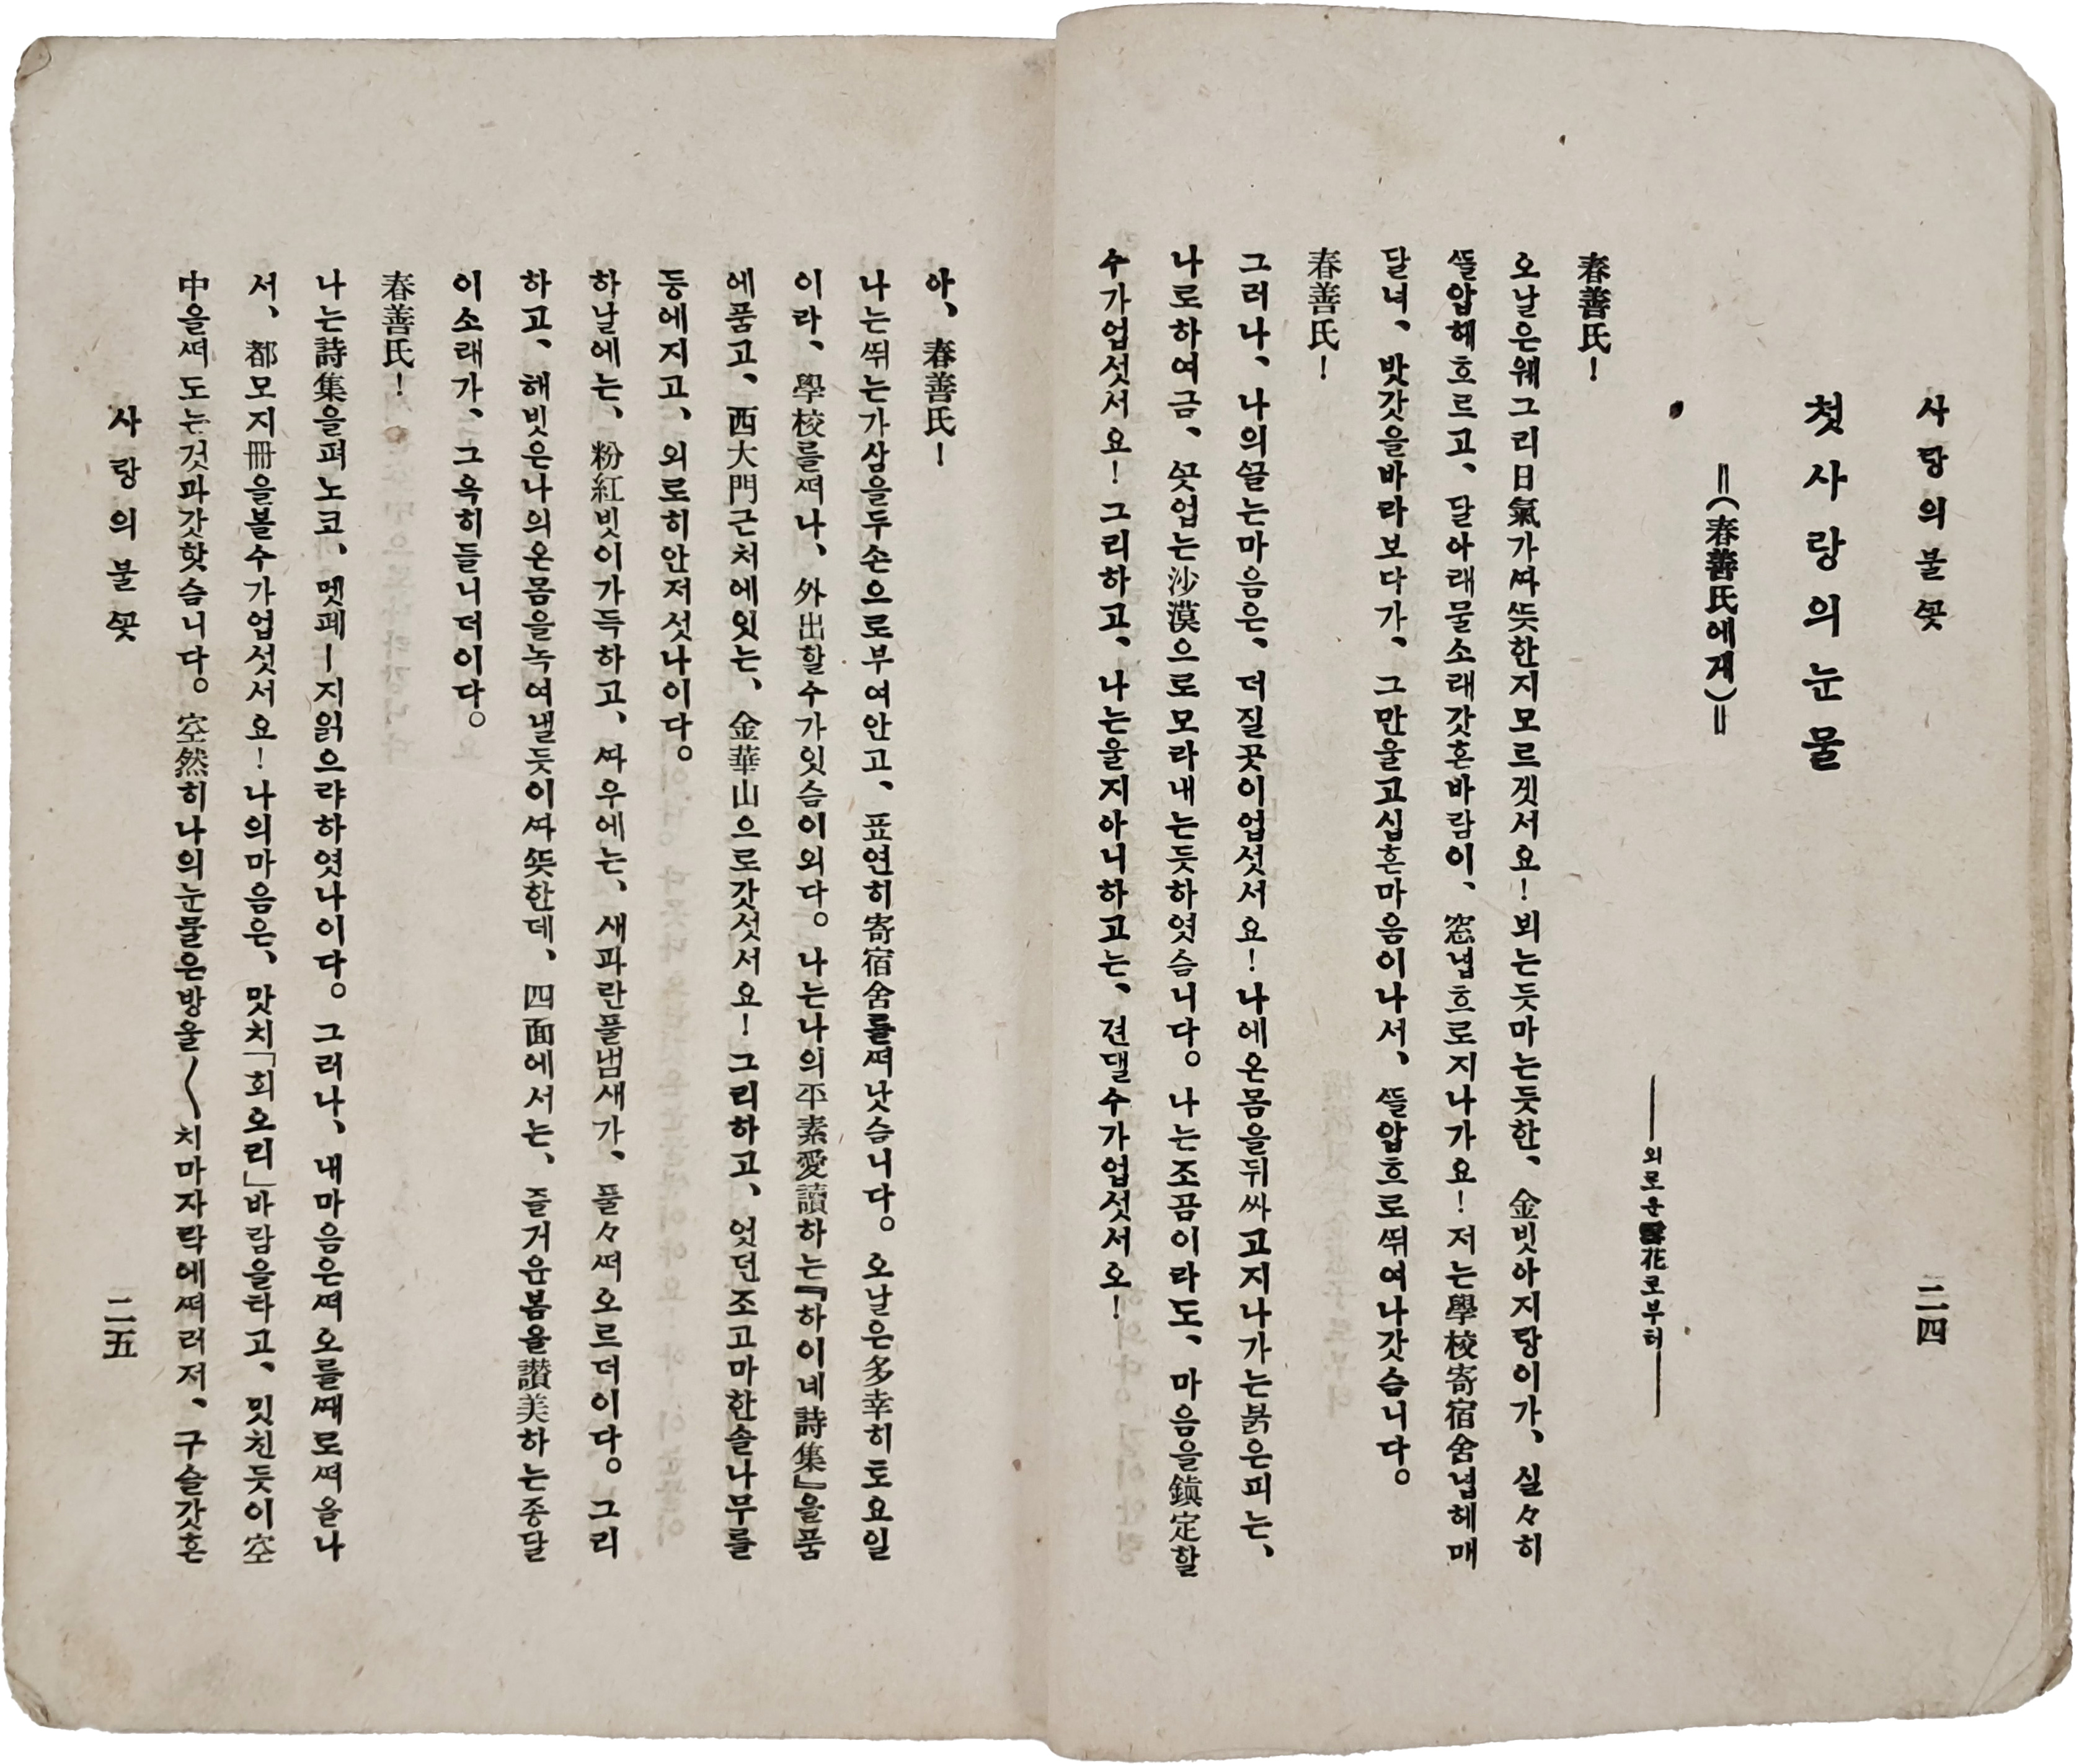 사랑의불ᄭᅩᆺ
二四
첫사랑의눈물
＝(春善氏에게)＝
──외로운
花로부터──
春善氏!
오날은웨그리日氣가ᄯᅡᄯᅳᆺ한지모르겟서요! 뵈는듯마는듯한、金빗아지랑이가、실々히
ᄯᅳᆯ압헤흐르고、달아래물소래갓흔바람이、窓녑흐로지나가요! 저는學校寄宿舍녑헤매
달녀、밧갓을바라보다가、그만울고십흔마음이나서、ᄯᅳᆯ압흐로ᄯᅱ여나갓슴니다。
春善氏!
그러나、나의ᄭᅳᆯ는마음은、더질곳이업섯서요! 나에온몸을뒤싸고지나가는붉은피는、
나로하여금、ᄭᅩᆺ업는沙漠으로모라내는듯하엿슴니다。나는조곰이라도、마음을鎭定할
수가업섯서요! 그리하고、나는울지아니하고는、견댈수가업섯서오!
아、春善氏!
나는ᄯᅱ는가삼을두손으로부여안고、표연히寄宿舍를ᄯᅥ낫슴니다。오날은多幸히토요일
이라、學校를ᄯᅥ나、外出할수가잇슴이외다。나는나의平素愛讀하는『하이네詩集』을품
에품고、西大門근처에잇는、金華山으로갓섯서요! 그리하고、엇던조고마한솔나무를
등에지고、외로히안저섯나이다。
하날에는、粉紅빗이가득하고、ᄯᅡ우에는、새파란풀범새가、풀々ᄯᅥ오르더이다。그리
하고、해빗은나의온몸을녹여낼듯이ᄯᅡᄯᅳᆺ한데、四面에서는、즐거운봄을讚美하는종달
이소래가、그윽히들니더이다。
春善氏!
나는詩集을펴노코、멧페ー지읽으랴하엿나이다。그러나、내마음은ᄯᅥ오를ᄯᅢ로ᄯᅥ올나
서、都모지冊을볼수가업섯서요! 나의마음은、맛치「회오리」바람을타고、밋친듯이空
中을ᄯᅥ도는것과갓핫슴니다。空然히나의눈물은방울〱치마자락에ᄯᅥ러저、구슬갓흔
사랑의불ᄭᅩᆺ
二五